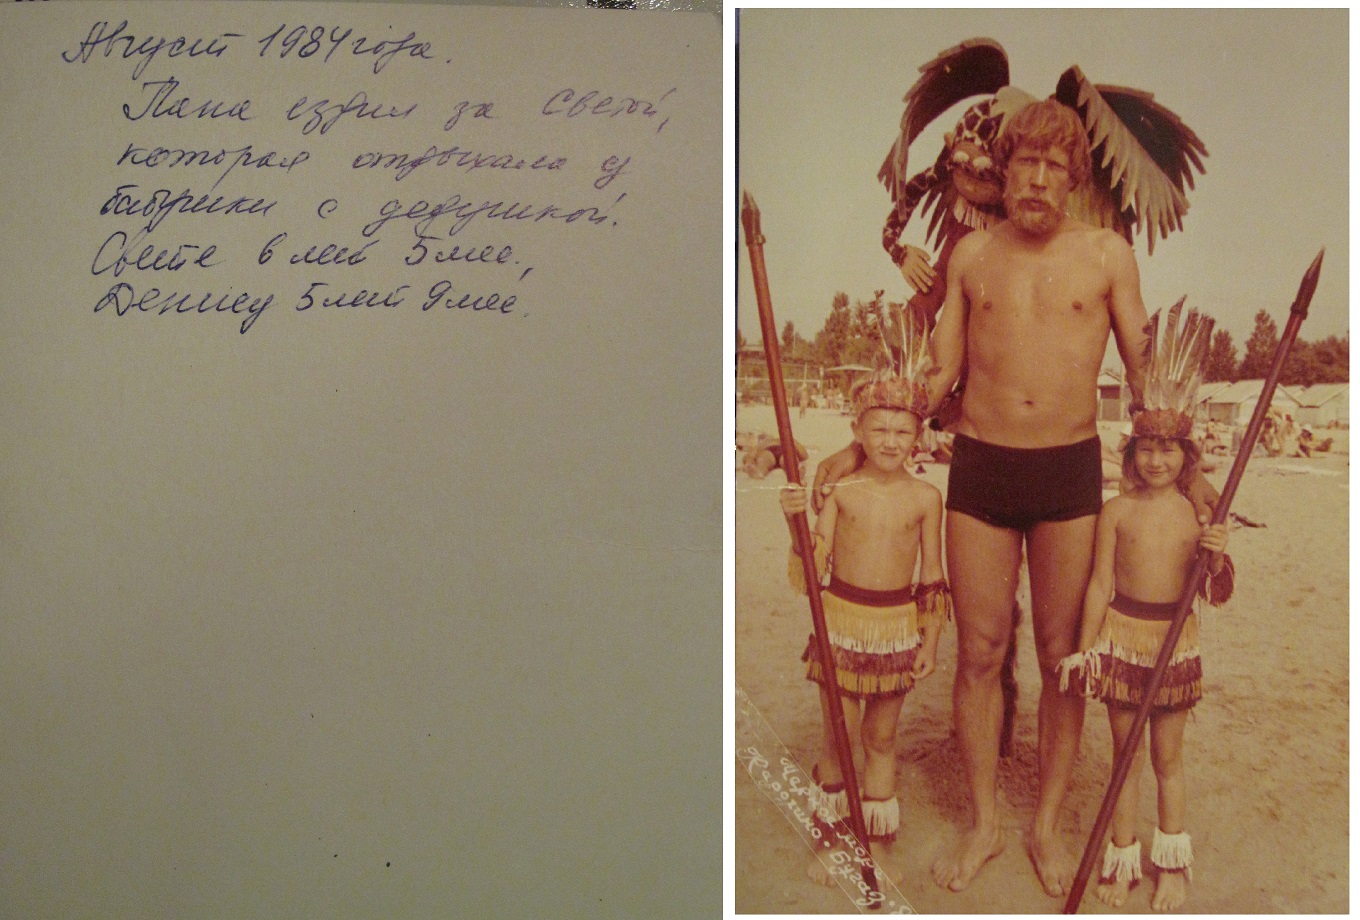 Август 1984 года.
Папа ездил за Светой,
которая отдыхала у
бабушки с дедушкой.
Свете 6 лет 5 мес.,
Денису 5 лет 9 мес.
Черное море
Каролино-Бугаз